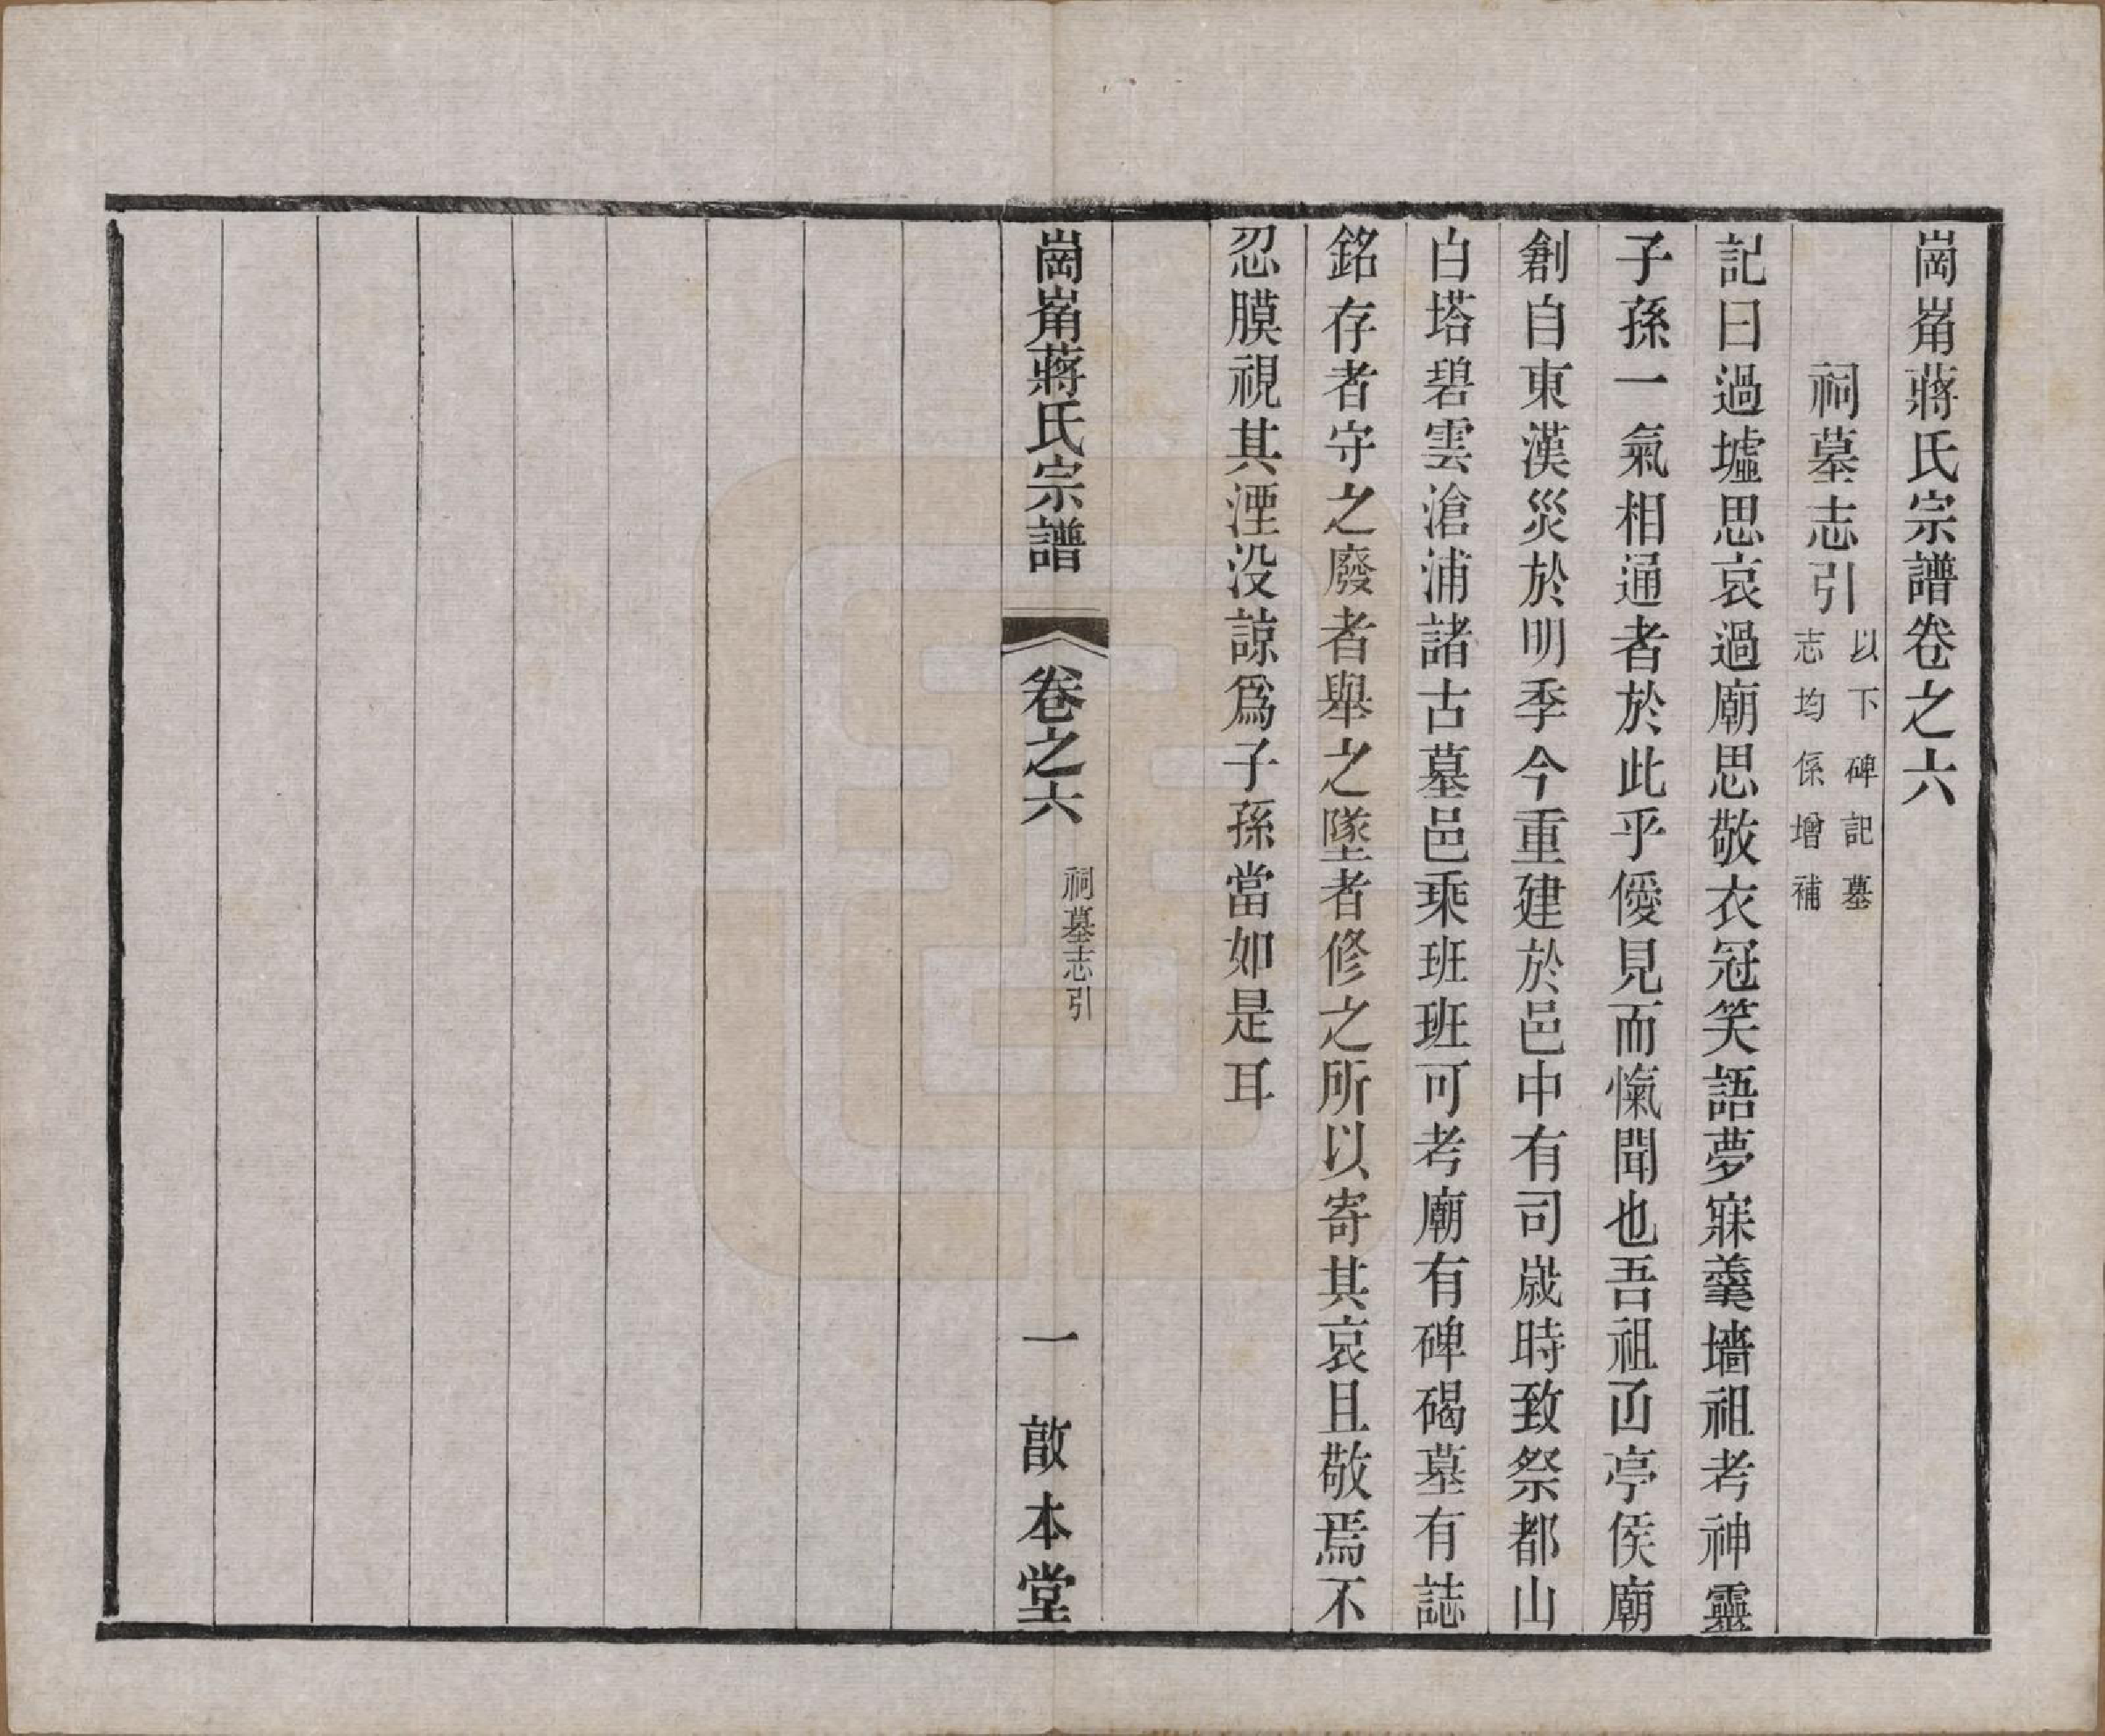 崗峟蔣氏宗譜卷之六
祠墓志引
以下碑記墓
志均係增補
記曰過墟思哀過廟思敬衣冠笑語夢寐羹墻祖考神靈
子孫一氣相通者於此乎僾見而愾聞也吾祖𠄨亭侯廟
創自東漢災於明季今重建於邑中有司歲時致祭都山
白塔碧雲滄浦諸古墓邑乘班班可考廟有碑碣墓有誌
銘存者守之廢者舉之墜者修之所以寄其哀且敬焉不
忍膜視其湮没諒爲子孫當如是耳
崗峟蔣氏宗譜
卷之六
祠墓志引
一
敾本堂